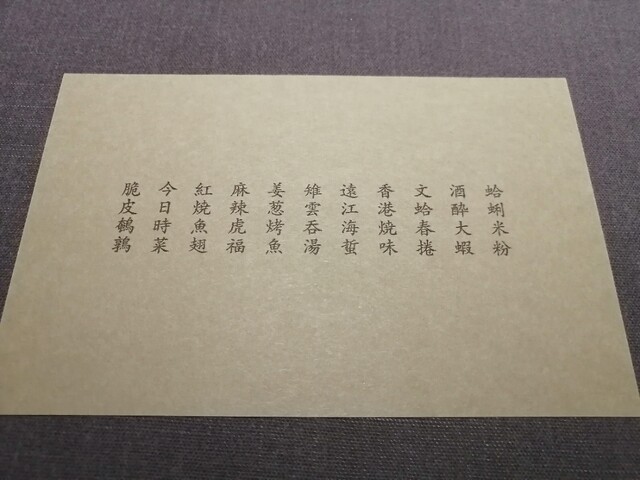 蛤蜊米粉
酒醉大蝦
文蛤春捲
香港燒味
遠江海蜇
雉雲吞湯
姜葱烤魚
麻辣虎福
紅燒魚翅
今日時菜
脆皮鵪鶉